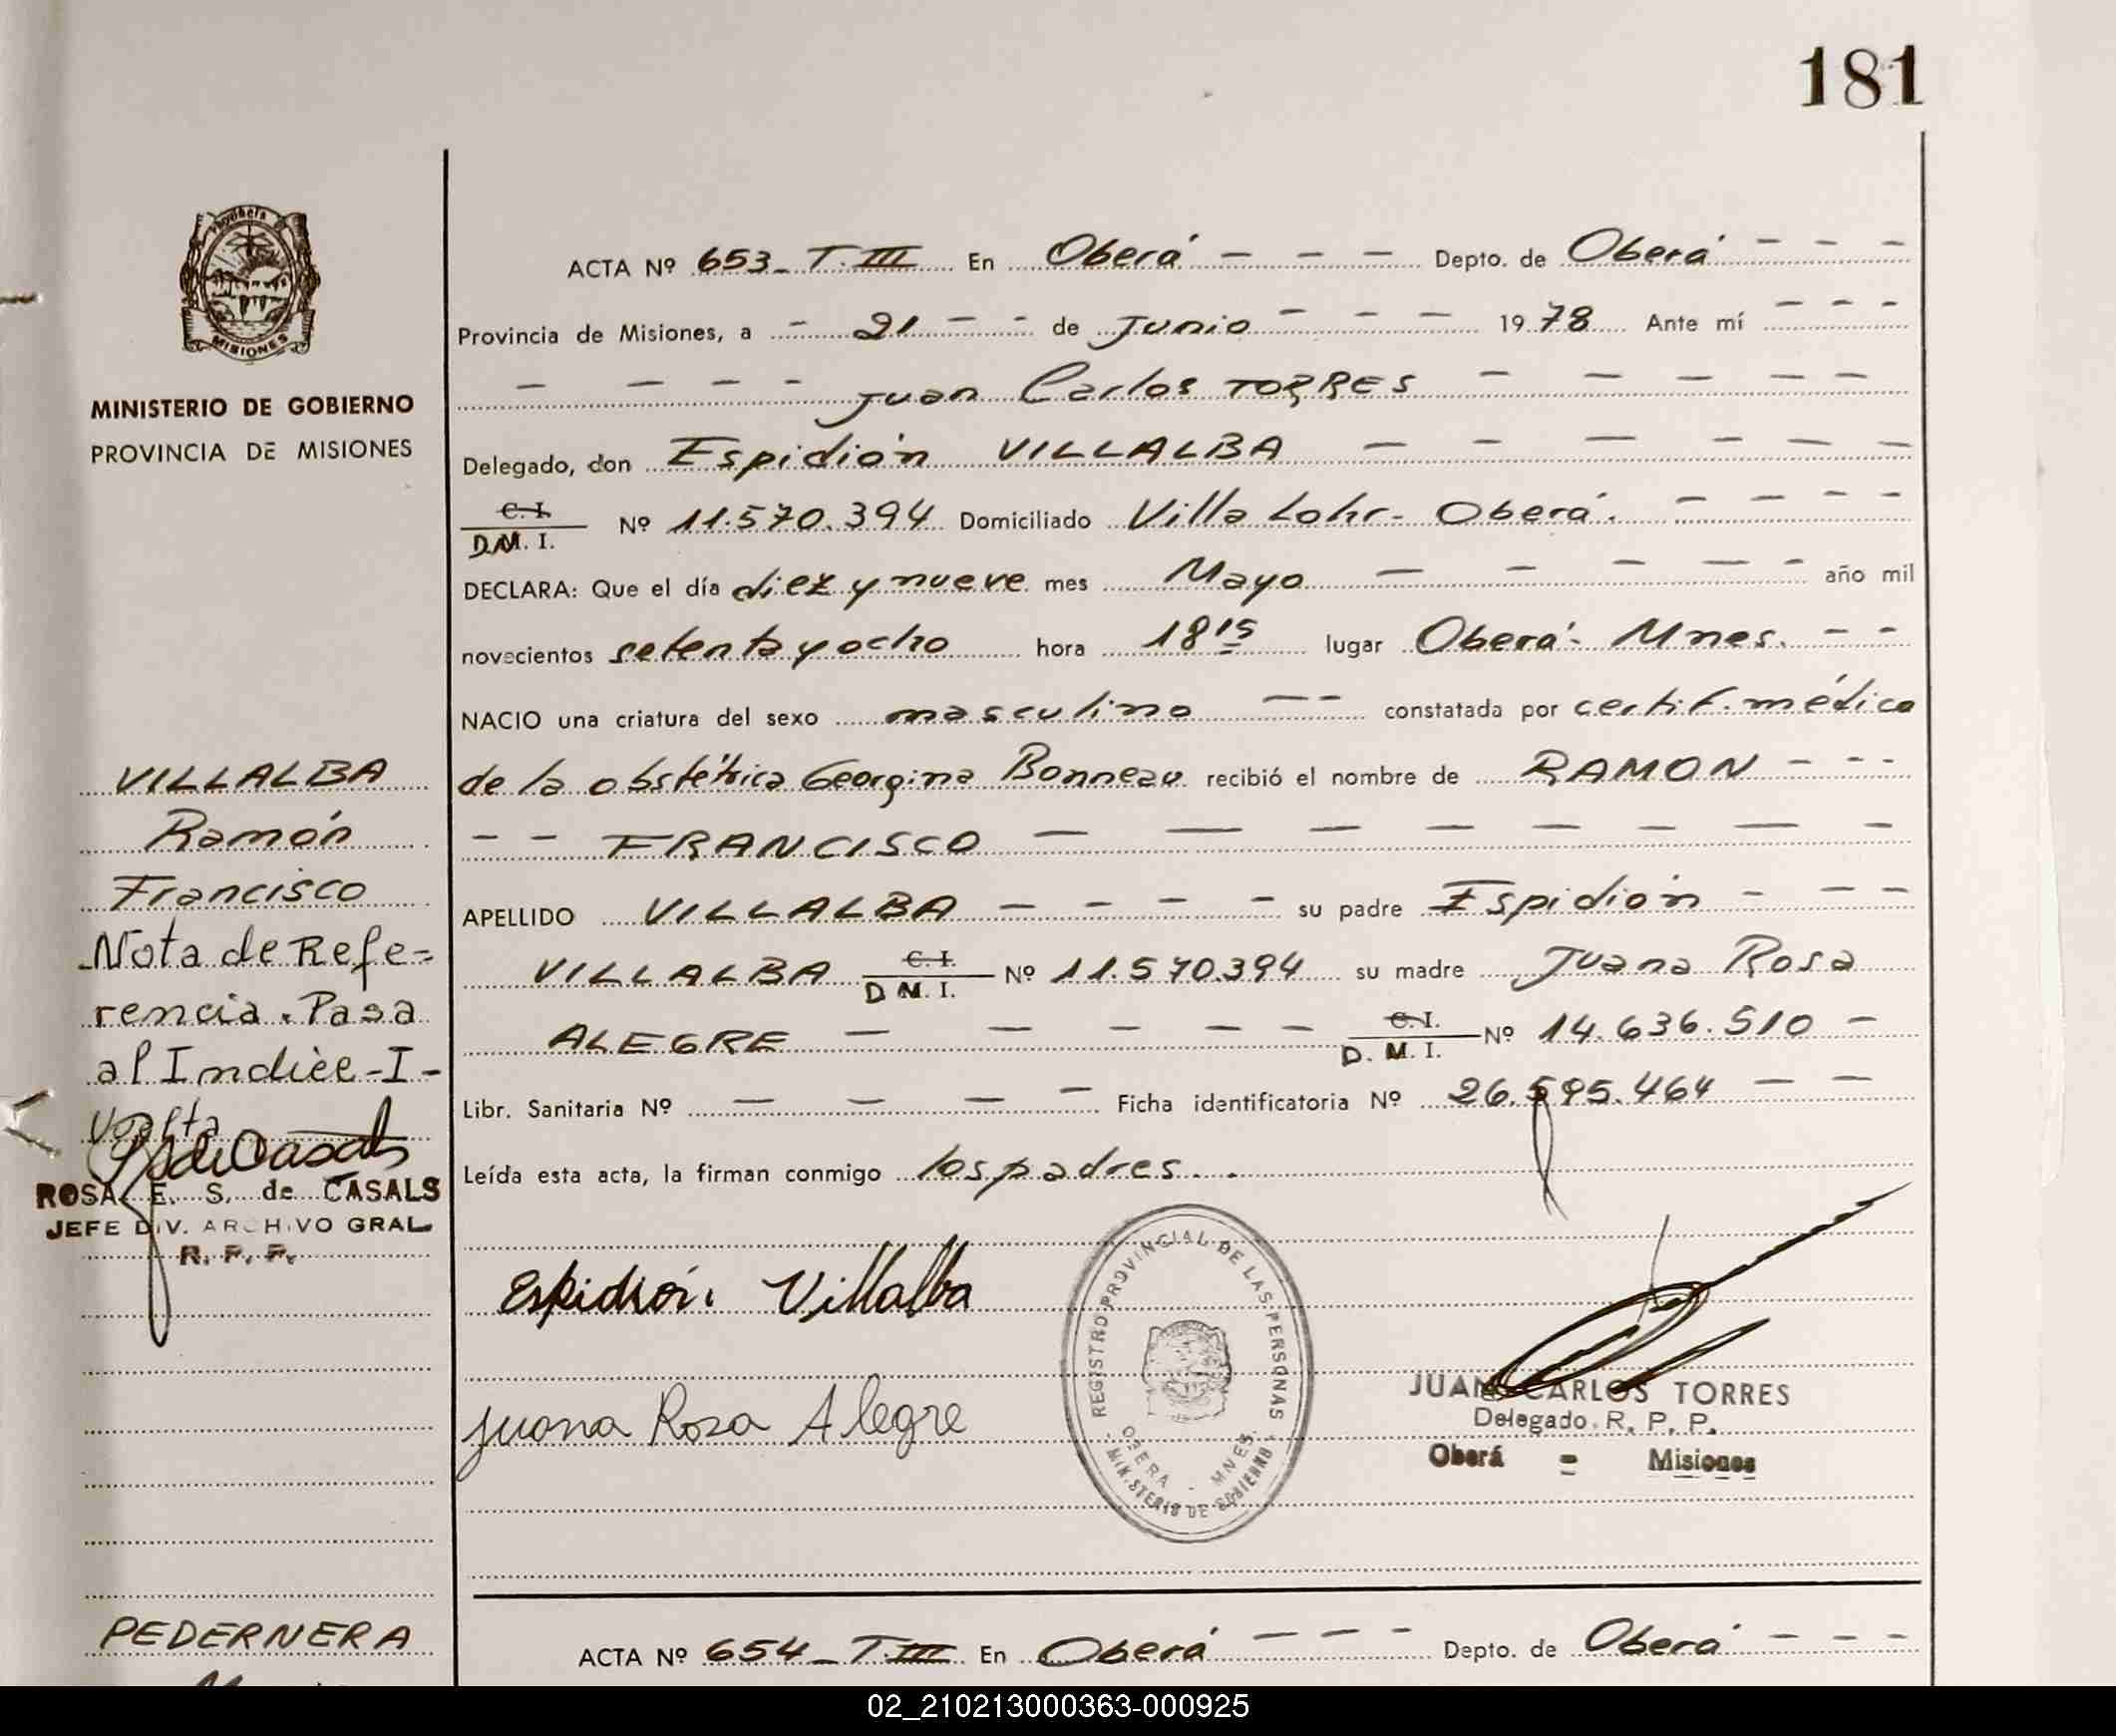 181
Payubera
MISIONES
MINISTERIO DE GOBIERNO
PROVINCIA DE MISIONES
ACTA Nº 653_ T. III En Oberá - - - Depto. de Oberá - - -
Provincia de Misiones, a - 21 - - de Junio - - - 1978 Ante mí - - -
- - - - Juan Carlos TORRES - - - - -
Delegado, don Espidión VILLALBA - - - - - -
C. I.
D. M. I. Nº 11.570.394 Domiciliado Villa Lohr - Oberá. - - - -
DECLARA: Que el día diez y nueve mes Mayo - - - - - año mil
novecientos setenta y ocho hora 18 15 lugar Oberá - Mnes. - -
NACIO una criatura del sexo masculino - - constatada por certif. médico
de la obstétrica Georgina Bonneau recibió el nombre de RAMON - - -
- - FRANCISCO - - - - - - - -
APELLIDO VILLALBA - - - - su padre Espidión - - -
VILLALBA C. I.
D. M. I. Nº 11.570.394 su madre Juana Rosa
ALEGRE - - - - - C. I.
D. M. I. Nº 14.636.510 -
Libr. Sanitaria Nº - - - - Ficha identificatoria Nº 26.595.464 - -
Leída esta acta, la firman conmigo los padres. .
VILLALBA
Ramón
Francisco
Nota de Refe=
rencia. Pasa
al Indice-I-
Vuelta
ROSA E. S. de CASALS
JEFE DIV. ARCHIVO GRAL
R. P. P.
Espidión Villalba
Juana Rosa Alegre
REGISTRO PROVINCIAL DE LAS PERSONAS
OBERA - MNES.
- MINISTERIO DE GOBIERNO -
JUAN CARLOS TORRES
Delegado R. P. P.
Oberá - Misiones
PEDERNERA
ACTA Nº 654_ T. III En Oberá - - - Depto. de Oberá - - -
02_210213000363-000925